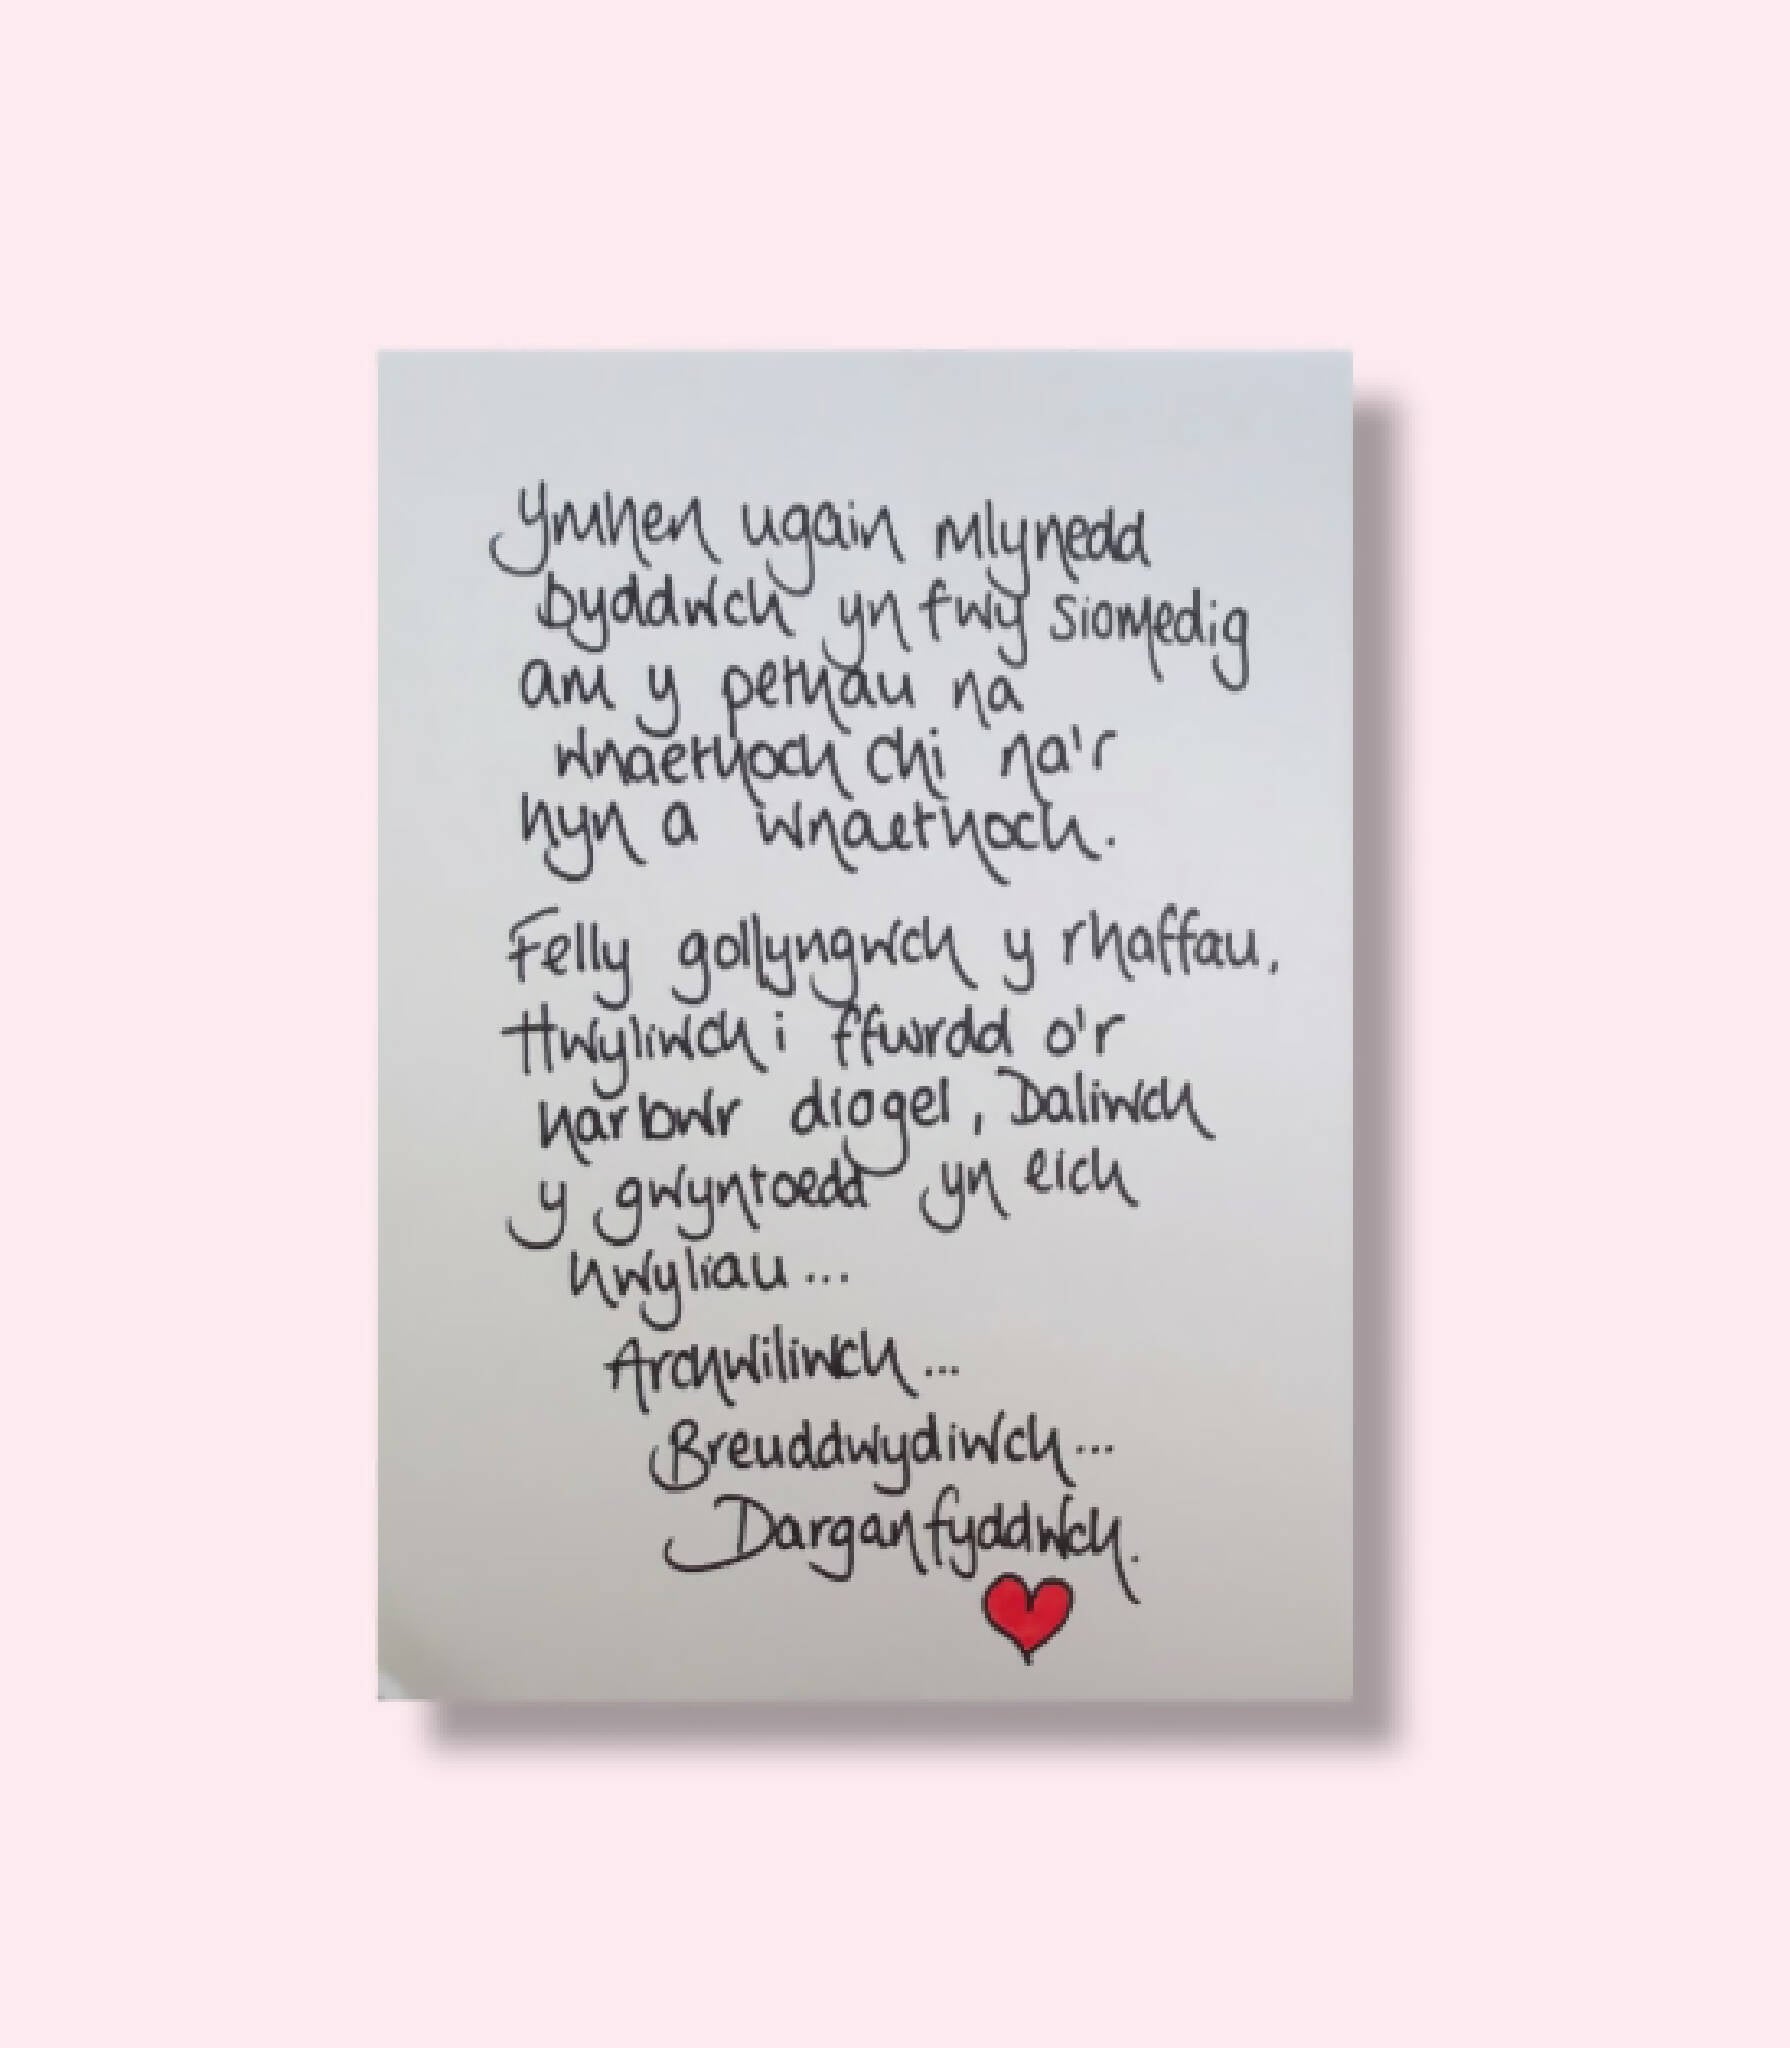 Ymhen ugain mlynedd
byddwch yn fwy siomedig
am y pethau na
wnaethoch chi na'r
hyn a wnaethoch.
Felly gollyngwch y rhaffau.
Hwyliwch i ffwrdd o'r
harbwr diogel, Daliwch
y gwyntoedd yn eich
hwyliau...
Archwiliwch...
Breuddwydiwch...
Darganfyddwch.